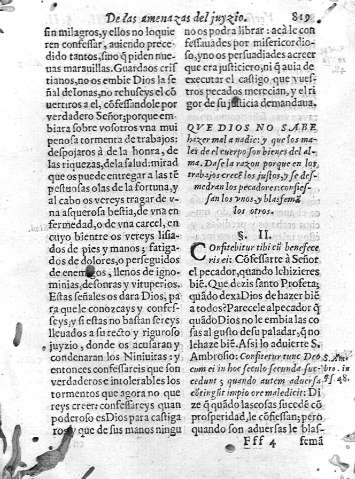 De las amenazas del juyzio. 819
sin milagros, y ellos no lo quie
ren confessar, auiendo prece
dido tantos, sino q̃ piden nue-
uas marauillas. Guardaos cris
tianos, no os embie Dios la se
ñal de Ionas, no rehuseys el cõ
uertiros a el, cõfessandole por
verdadero Señor; porque em
biara sobre vosotros vna mui
penosa tormenta de trabajos;
despojaros á de la honra, de
las riquezas, de la salud: mirad
que os puede entregar a las tẽ
pestuosas olas de la fortuna, y
al cabo os vereys tragar de v-
na asquerosa bestia, de vna en
fermedad, o de vna carcel, en
cuyo bientre os vereys lisia-
dos de pies y manos; fatiga-
dos de dolores, o perseguidos
de enemigos, llenos de igno-
minias, desonras y vituperios.
Estas señales os dara Dios, pa
ra que le conozcays y confes-
seys, y si estas no bastan sereys
lleuados a su recto y riguroso
juyzio, donde os acusaran y
condenaran los Niniuitas: y
entonces confessareis que son
verdaderos e intolerables los
tormentos que agora no que
reys creer: confessareys quan
poderoso es Dios para castiga
ros, y que de sus manos ningu
no os podra librar: acà le con
fessauades por misericordio-
so, y no os persuadiades a creer
que era justiciero, ni q̃ auia de
executar el castigo que vues-
tros pecados merecian, y el ri
gor de su justicia demandaua.
QVE DIOS NO SABE
hazer mal a nadie: y que los ma
les de el cuerpo son bienes del al
ma. Dase la razon porque en los
trabajos crecẽ los justos, y se des-
medran los pecadores: confies-
san los vnos, y blasfemã
los otros.
§. II.
COnfitebitur tibi cũ benefece
ris ei: Cõfessarte à Señor
el pecador, quando le hizieres
biẽ. Que dezis santo Profeta;
quãdo dexa Dios de hazer biẽ
a todos? Parecele al pecador q̃
quãdo Dios no le embia las co
sas al gusto de su paladar, q̃ no
le haze biẽ. Assi lo aduierte S.
Ambrosio: Confitetur tunc Deo
cum ei in hoc seculo secunda suc-
cedunt; quando autem aduersa
cõtingũt impio ore maledicit: Di
ze q̃ quãdo las cosas suceden cõ
prosperidad, le cõfiessan; pero
quando son aduersas le blas-
S. Am
bro. in
ps. 48.
Fff 4 femã